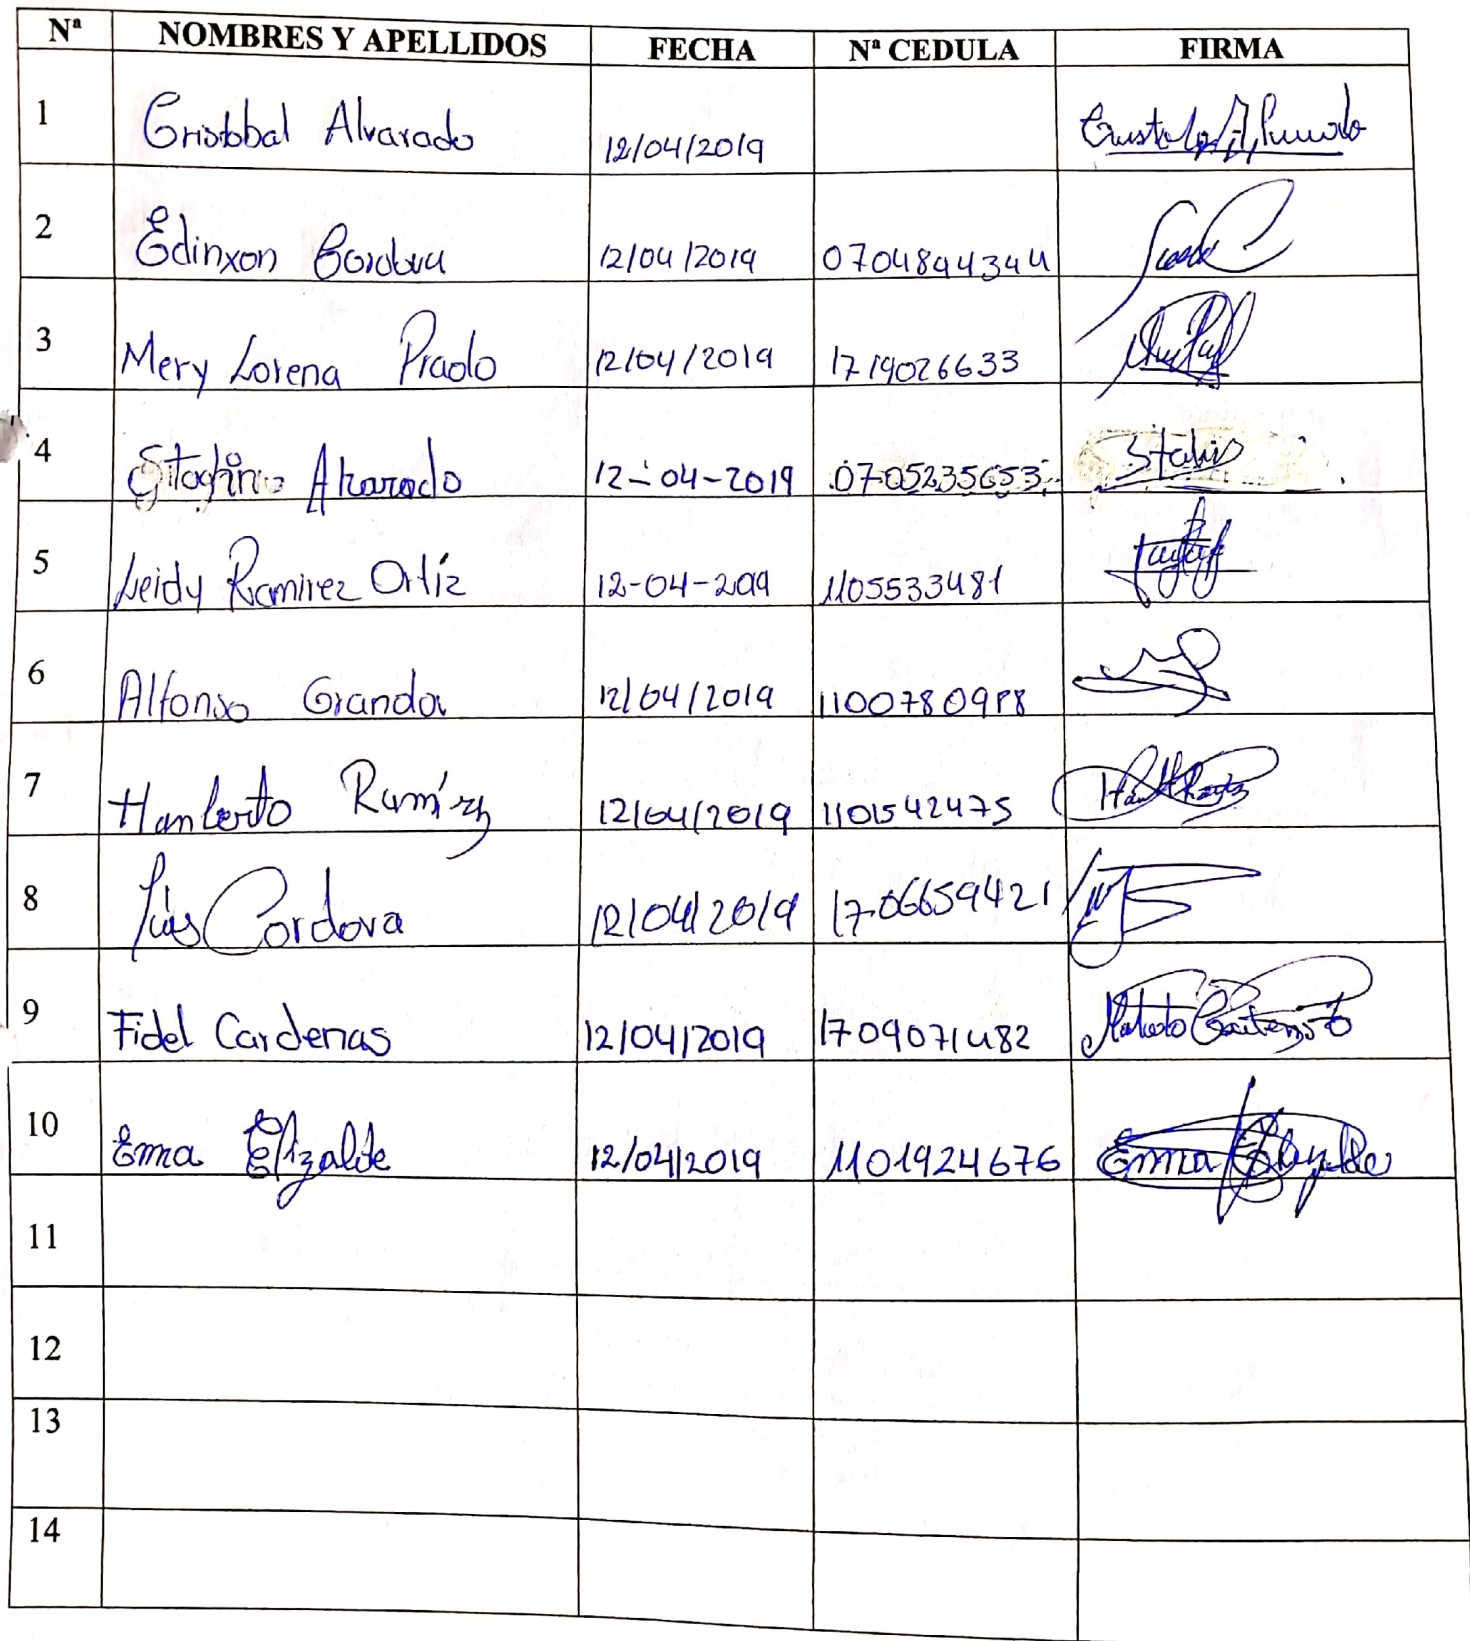 Nª NOMBRES Y APELLIDOS FECHA Nª CEDULA FIRMA
1 Cristobal Alvarado 12/04/2019
2 Edinxon 12/04/2019 0704844344
3 Mery Lorena Prado 12/04/2019 1719026633
4 Alvarado 12-04-2019 0705235653
5 Leidy Ramirez Ortíz 12-04-2019 1105533481
6 Alfonso Granda 12/04/2019 1100780988
7 Humberto Ramírez 12/04/2019 1101542475
8 Luis Cordova 12/04/2019 1706659421
9 Fidel Cardenas 12/04/2019 1709071482
10 Emma Elizalde 12/04/2019 1101924676 Emma Elizalde
11
12
13
14